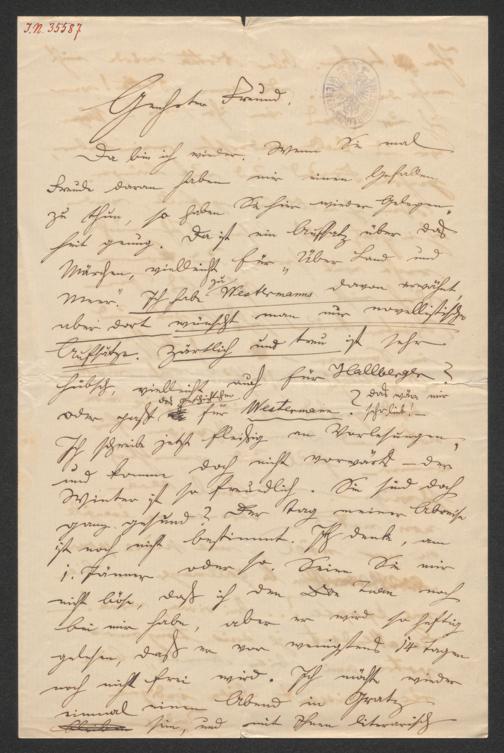 I.N. 35587
Geehrter Freund.
Da bin ich wieder. Wenn Sie mal
Freude daran haben mir einen Gefallen
zu thun, so haben Sie hier wieder Gelegen-
heit genug. Da ist ein Aufsatz über das
Märchen, vielleicht für „Über Land und
Meer“. Ich habe zu Westermanns davon erwähnt
aber dort wünscht man nur novellistische
Aufsätze. Zärtlich und treu ist sehr
hübsch, vielleicht auch für Hallberger?
oder paßt das für Westermann? das wäre mir
Ich schreibe jetzt fleißig an Vorlesungen,
und komme doch nicht vorwärts – der
Winter ist so freundlich. Sie sind doch
ganz gesund? Der Tag meiner Abreise
ist noch nicht bestimmt. Ich denke, am
1. Jänner oder so. Seien Sie mir
nicht böse, daß ich den noch
bei mir habe, aber er wird so heftig
gelesen, daß er vor wenigstens 14 Tagen
noch nicht frei wird. Ich möchte wieder
einmal einen Abend in Gratz
sein, und mit Ihnen literarisch